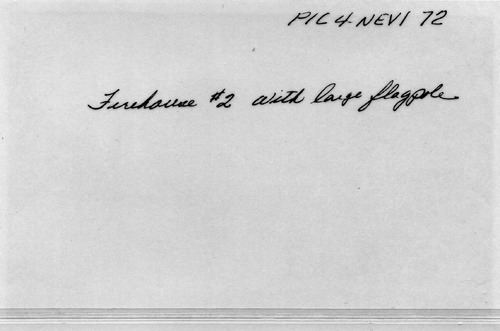 PIC 4 NEVI 72
Firehouse #2 with large flagpole